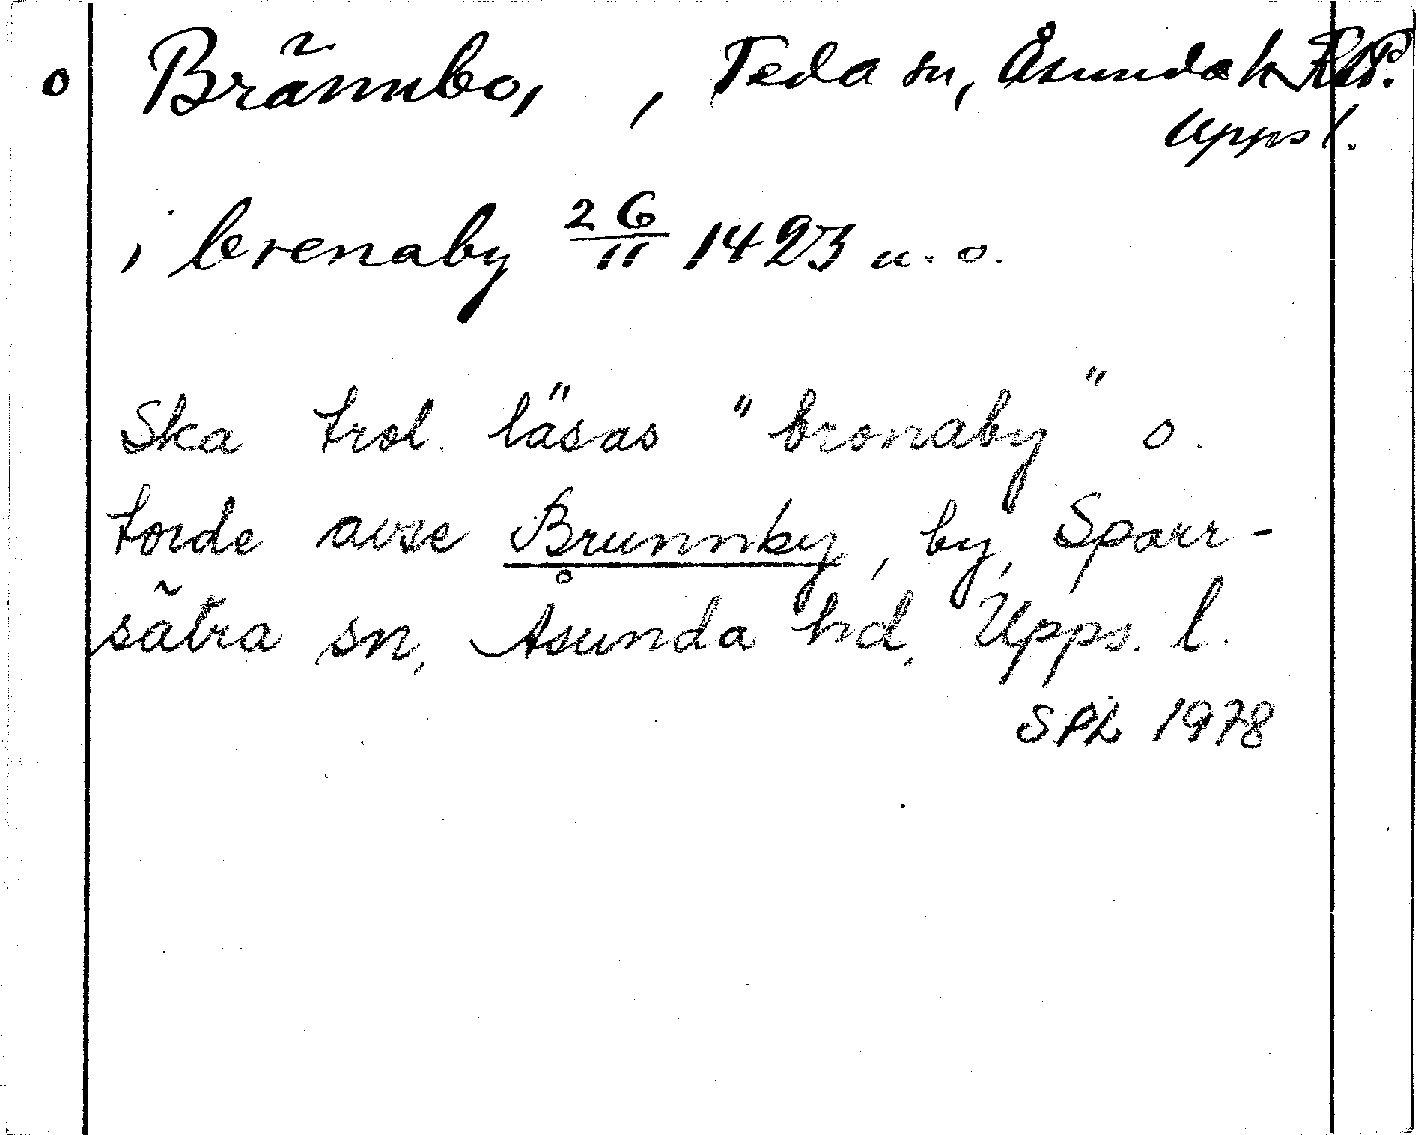 o Brännbo, , Teda sn, Åsunda h
Upps l.
i brenaby 26/11 1423 u. o.
Ska trol. läsas "bronaby" o.
torde avse Brunnby, by, Sparr-
sätra sn, Åsunda hd, Upps. l.
SPL 1978